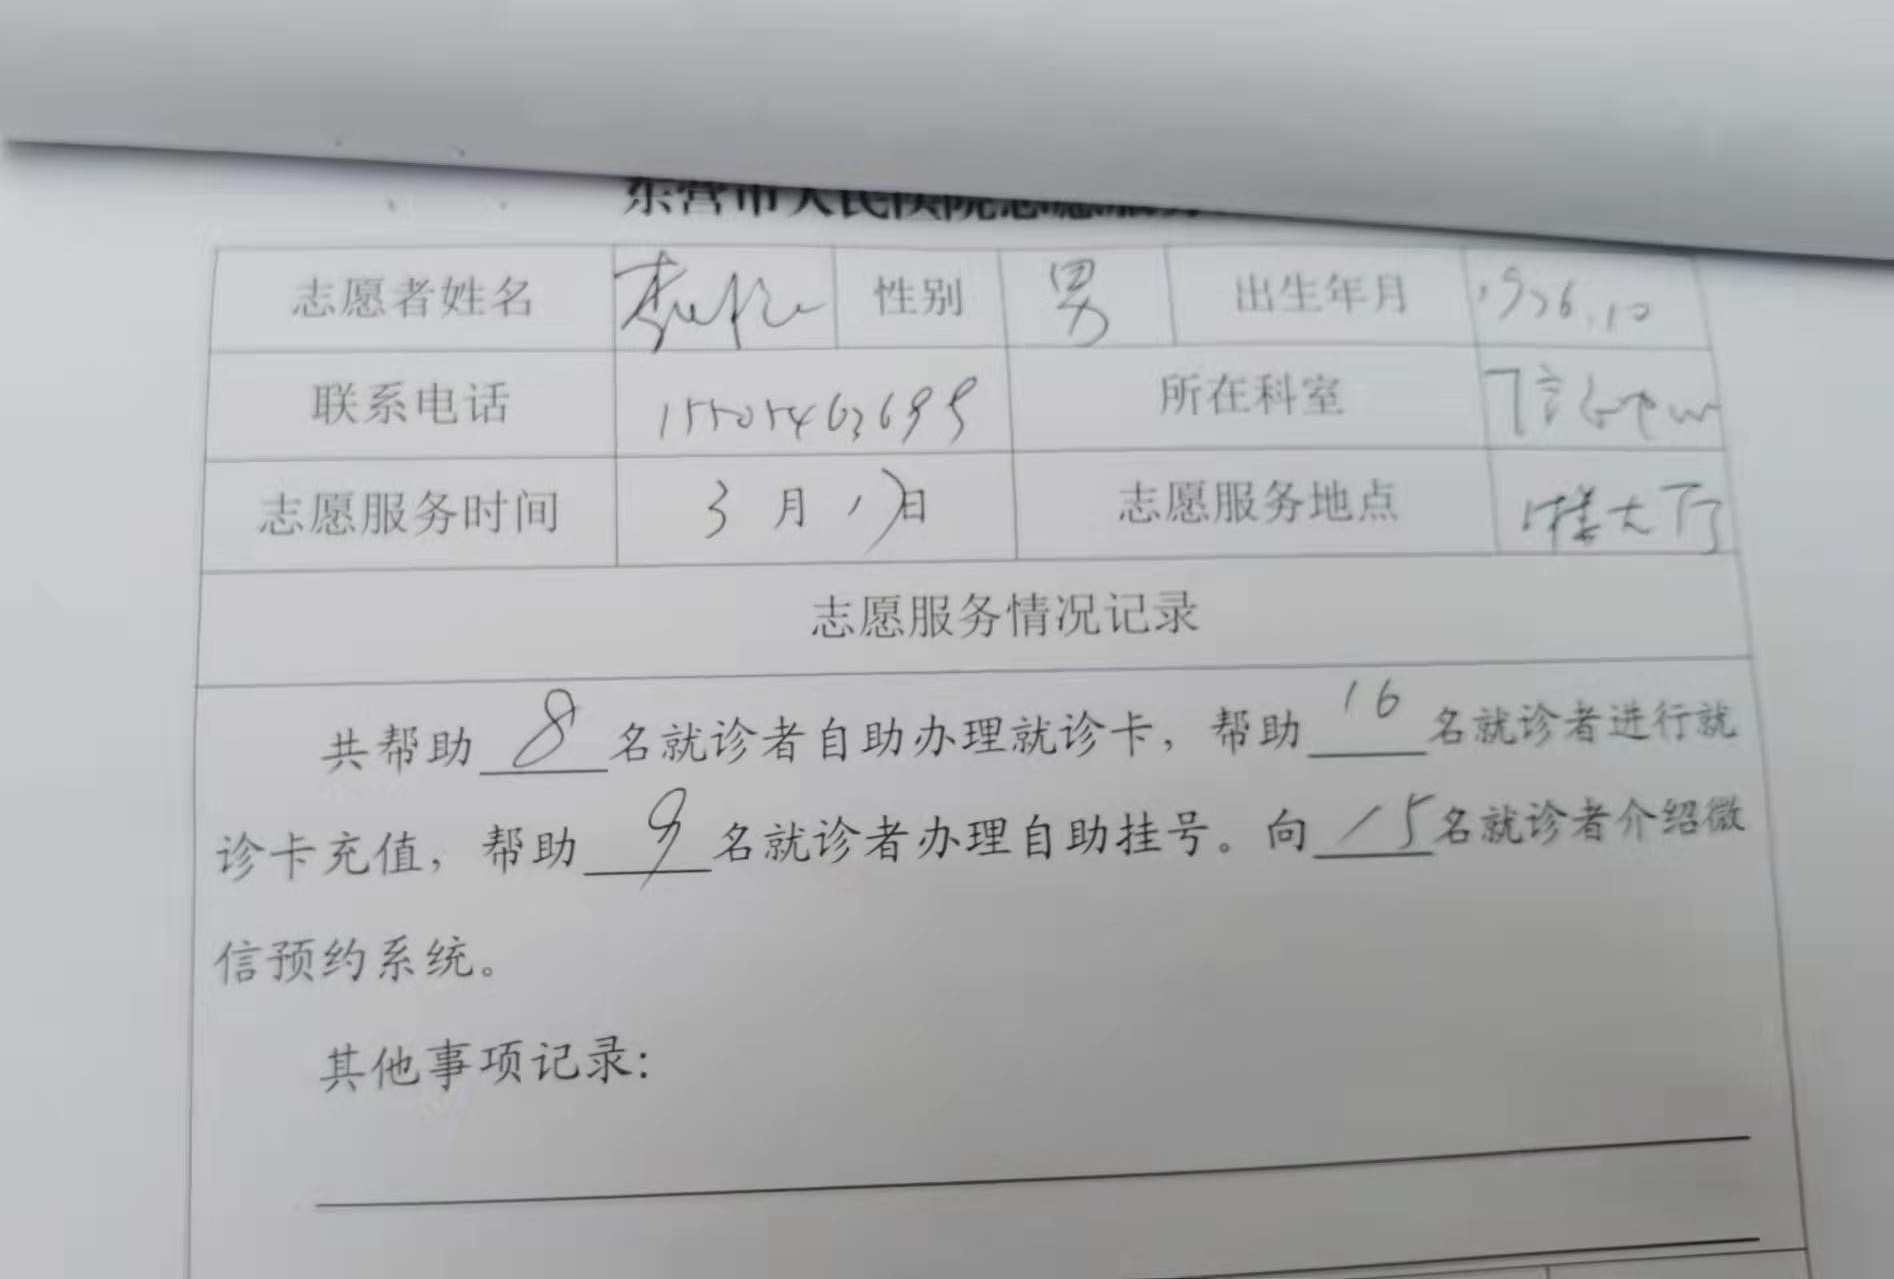 东营市人民医院志愿服务
志愿者姓名 李 性别 男 出生年月 1976.10
联系电话 15505463699 所在科室
志愿服务时间 3月17日 志愿服务地点 1楼大厅
志愿服务情况记录
共帮助 8 名就诊者自助办理就诊卡，帮助 16 名就诊者进行就
诊卡充值，帮助 9 名就诊者办理自助挂号。向 15 名就诊者介绍微
信预约系统。
其他事项记录：